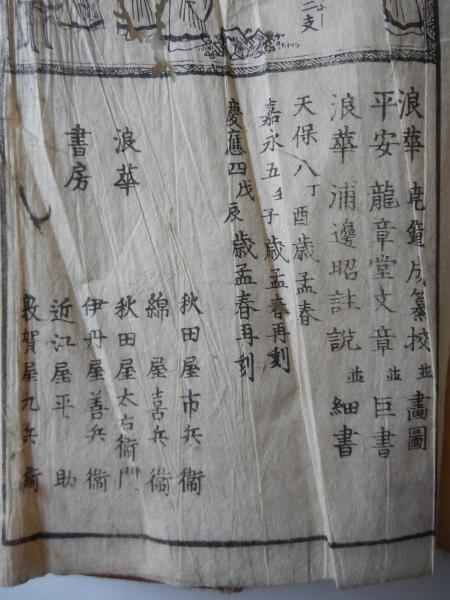 二支
浪華 鼎成纂挍 並 畵圖
平安 龍章堂文章 並 巨書
浪華 浦邊昭註説 並 細書
天保八丁酉歳孟春
嘉永五壬子歳孟春再刻
慶應四戊辰歳孟春再刻
浪華
書房
秋田屋市兵衞
綿屋喜兵衞
秋田屋太右衞門
伊丹屋善兵衞
近江屋平助
敦賀屋九兵衞